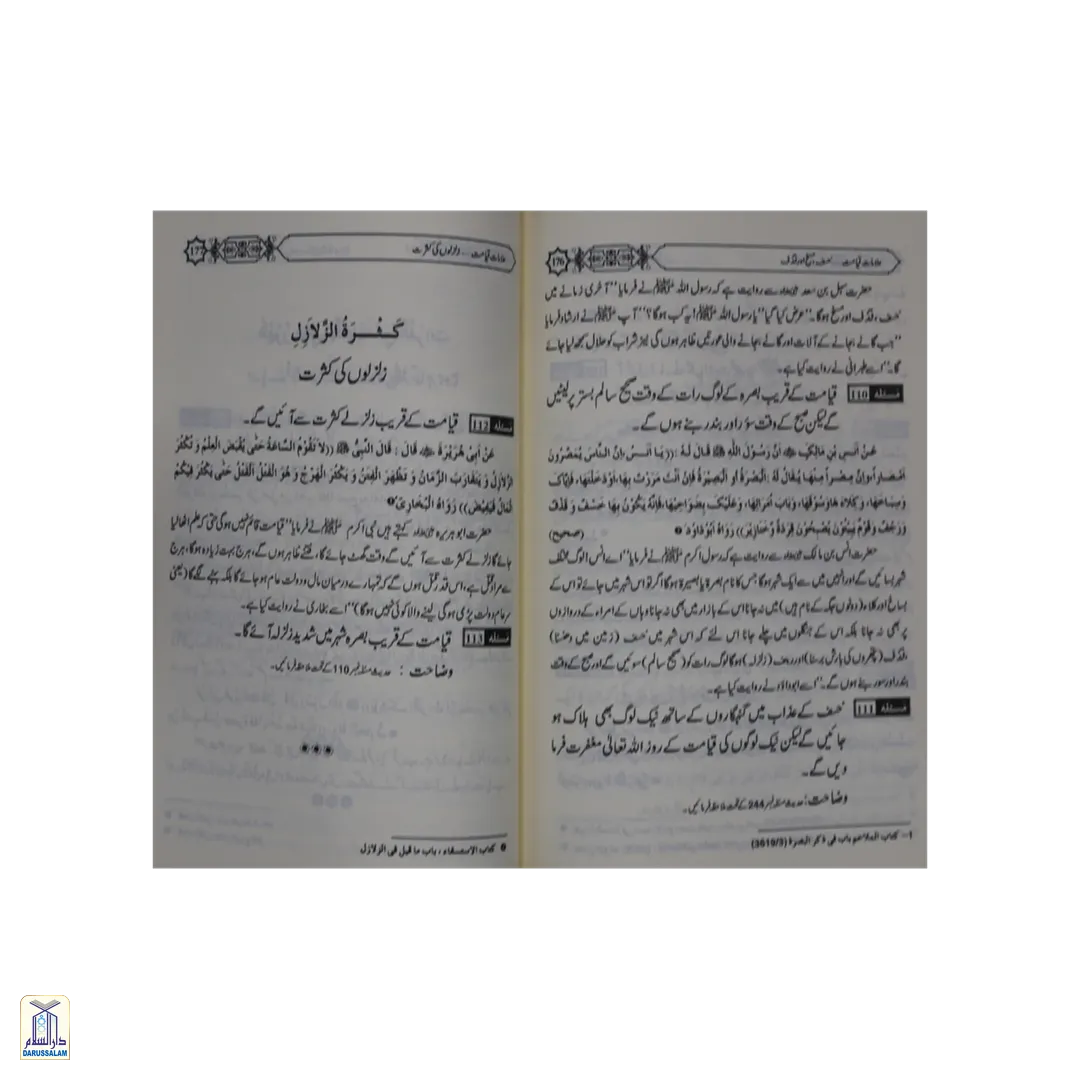 176
علامات قیامت ... خسف، مسخ اور قذف
حضرت سہل بن سعد سے روایت ہے کہ رسول اللہ ﷺ نے فرمایا "آخری زمانے میں
خسف، قذف اور مسخ ہوگا۔" عرض کیا گیا "یا رسول اللہ ﷺ! یہ کب ہوگا؟" آپ ﷺ نے ارشاد فرمایا
"جب گانے بجانے کے آلات اور گانے بجانے والی عورتیں ظاہر ہوں گی نیز شراب کو حلال سمجھ لیا جائے
گا۔" اسے طبرانی نے روایت کیا ہے۔
مسئلہ 110 قیامت کے قریب بصرہ کے لوگ رات کے وقت صحیح سالم بستر پر لیٹیں
گے لیکن صبح کے وقت سؤر اور بندر بنے ہوں گے۔
عَنْ أَنَسِ بْنِ مَالِكٍ ﷺ أَنَّ رَسُوْلَ اللّٰهِ ﷺ قَالَ لَهُ : ((يَا أَنَسُ! إِنَّ النَّاسَ يُمَصِّرُوْنَ
أَمْصَارًا وَإِنَّ مِصْرًا مِنْهَا يُقَالُ لَهُ : الْبَصْرَةُ أَوِ الْبُصَيْرَةُ فَإِنْ أَنْتَ مَرَرْتَ بِهَا، أَوْ دَخَلْتَهَا، فَإِيَّاكَ
وَسِبَاخَهَا، وَكِلَاءَهَا وَسُوْقَهَا، وَبَابَ أُمَرَائِهَا، وَعَلَيْكَ بِضَوَاحِيْهَا، فَإِنَّهُ يَكُوْنُ بِهَا خَسْفٌ وَ قَذْفٌ
وَ رَجْفٌ وَ قَوْمٌ يَبِيْتُوْنَ يُصْبِحُوْنَ قِرَدَةً وَ خَنَازِيْرَ)) رَوَاهُ أَبُوْ دَاوُدَ (صحیح)
حضرت انس بن مالک سے روایت ہے کہ رسول اکرم ﷺ نے فرمایا "اے انس! لوگ مختلف
شہر بسائیں گے اور انہیں میں سے ایک شہر ہوگا جس کا نام بصرہ یا بصیرہ ہوگا اگر تو اس شہر میں جائے تو اس کے
سباخ اور کلاء (دونوں جگہ کے نام ہیں) میں نہ جانا اس کے بازار میں بھی نہ جانا وہاں کے امراء کے دروازوں
پر بھی نہ جانا بلکہ اس کے جنگلوں میں چلے جانا اس لئے کہ اس شہر میں خسف (زمین میں دھنسنا)
، قذف (پتھروں کی بارش برسنا) اور رجف (زلزلہ) ہوگا لوگ رات کو (صحیح سالم) سوئیں گے اور صبح کے وقت
بندر اور سور بنے ہوں گے۔" اسے ابو داؤد نے روایت کیا ہے۔
مسئلہ 111 خسف کے عذاب میں گنہگاروں کے ساتھ نیک لوگ بھی ہلاک ہو
جائیں گے لیکن نیک لوگوں کی قیامت کے روز اللہ تعالیٰ مغفرت فرما
دیں گے۔
وضاحت: حدیث مسئلہ نمبر 244 کے تحت ملاحظہ فرمائیں۔
1- کتاب الملاحم باب فی ذکر البصرة (3619/3)
177
علامات قیامت ... زلزلوں کی کثرت
كَثْرَةُ الزَّلَازِلِ
زلزلوں کی کثرت
مسئلہ 112 قیامت کے قریب زلزلے کثرت سے آئیں گے۔
عَنْ أَبِي هُرَيْرَةَ قَالَ : قَالَ النَّبِيُّ ﷺ ((لَا تَقُوْمُ السَّاعَةُ حَتّٰى يُقْبَضَ الْعِلْمُ وَ تَكْثُرَ
الزَّلَازِلُ وَ يَتَقَارَبَ الزَّمَانُ وَ تَظْهَرَ الْفِتَنُ وَ يَكْثُرَ الْهَرْجُ وَ هُوَ الْقَتْلُ الْقَتْلُ حَتّٰى يَكْثُرَ فِيْكُمُ
الْمَالُ فَيَفِيْضُ)) رَوَاهُ الْبُخَارِيُّ
حضرت ابو ہریرہ کہتے ہیں نبی اکرم ﷺ نے فرمایا "قیامت قائم نہیں ہوگی حتی کہ علم اٹھا لیا
جائے گا زلزلے کثرت سے آئیں گے وقت گھٹ جائے گا، فتنے ظاہر ہوں گے، ہرج بہت زیادہ ہوگا، ہرج
سے مراد قتل ہے، اس قدر قتل ہوں گے کہ تمہارے درمیان مال و دولت عام ہو جائے گا بلکہ بہنے لگے گا (یعنی
سر عام دولت پڑی ہوگی لینے والا کوئی نہیں ہوگا)" اسے بخاری نے روایت کیا ہے۔
مسئلہ 113 قیامت کے قریب بصرہ شہر میں شدید زلزلہ آئے گا۔
وضاحت : حدیث مسئلہ نمبر 110 کے تحت ملاحظہ فرمائیں۔
کتاب الاستسقاء ، باب ما قیل فی الزلازل
دارالسلام
DARUSSALAM